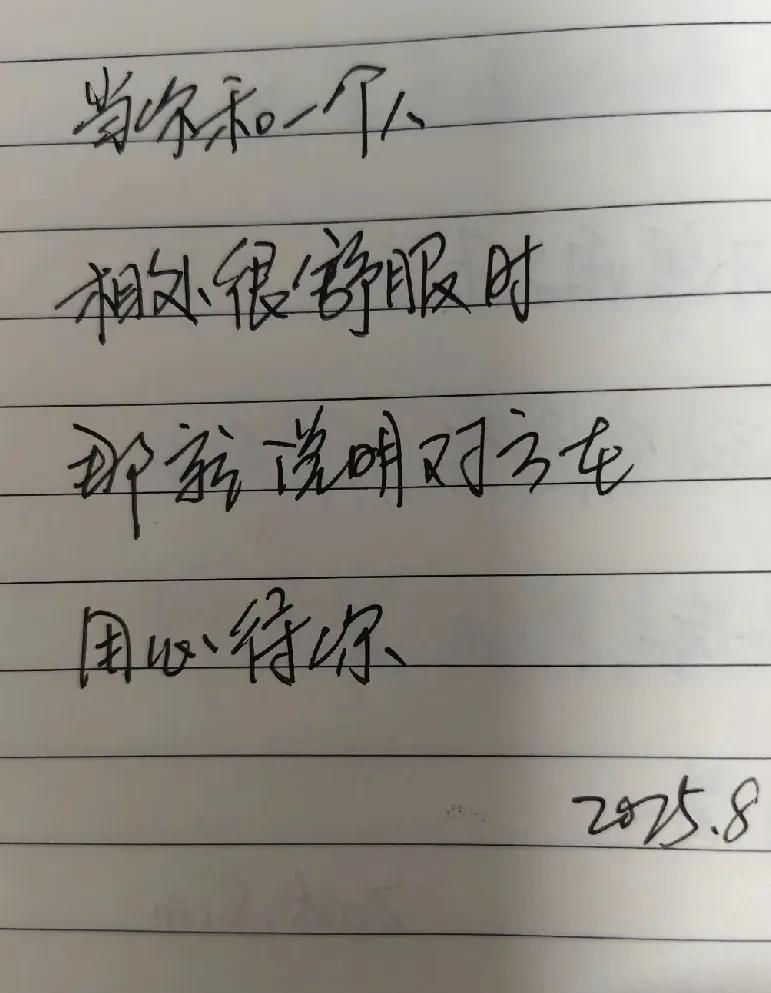 当你和一个人
相处很舒服时
那就说明对方在
用心待你
2025.8